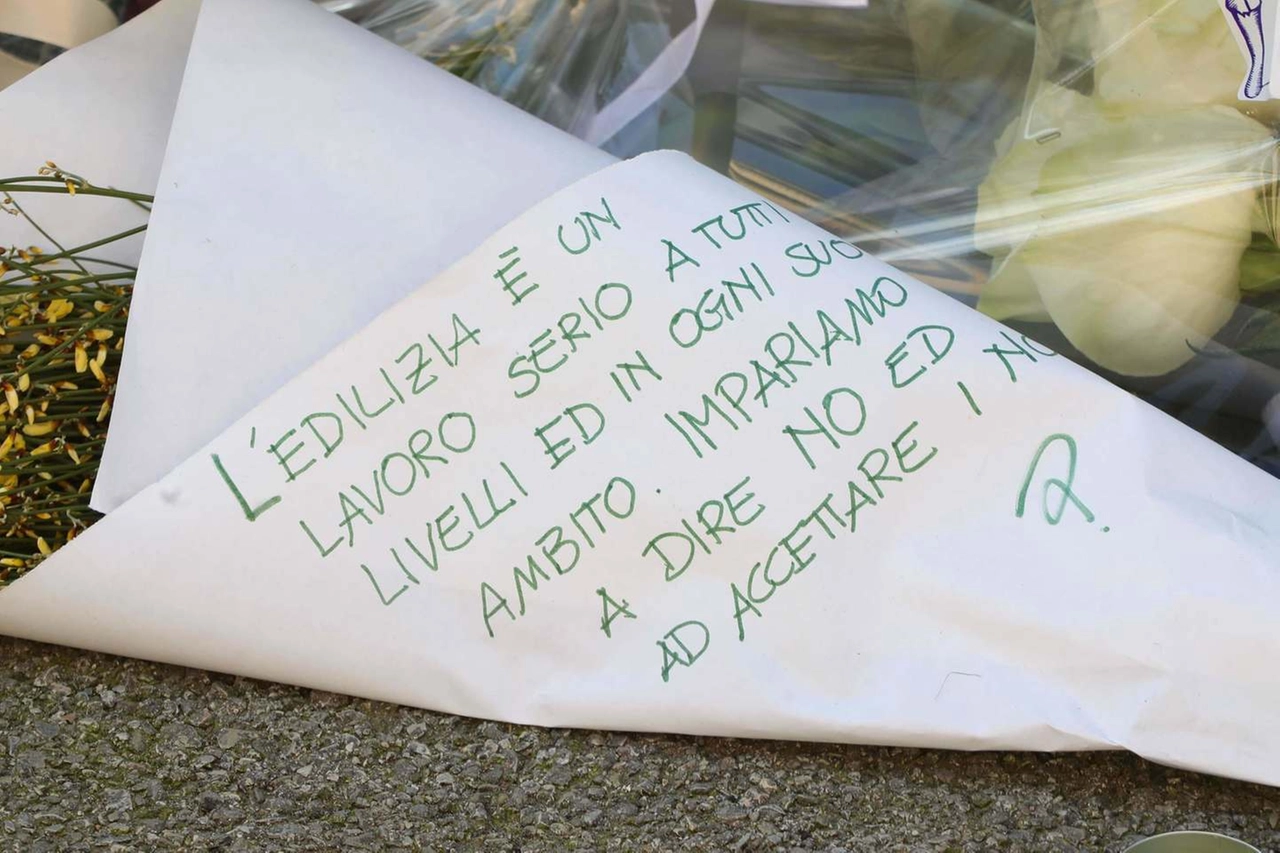 L'EDILIZIA È UN
LAVORO SERIO A TUTTI
LIVELLI ED IN OGNI SUO
AMBITO. IMPARIAMO
A DIRE NO ED
AD ACCETTARE I NO
R.